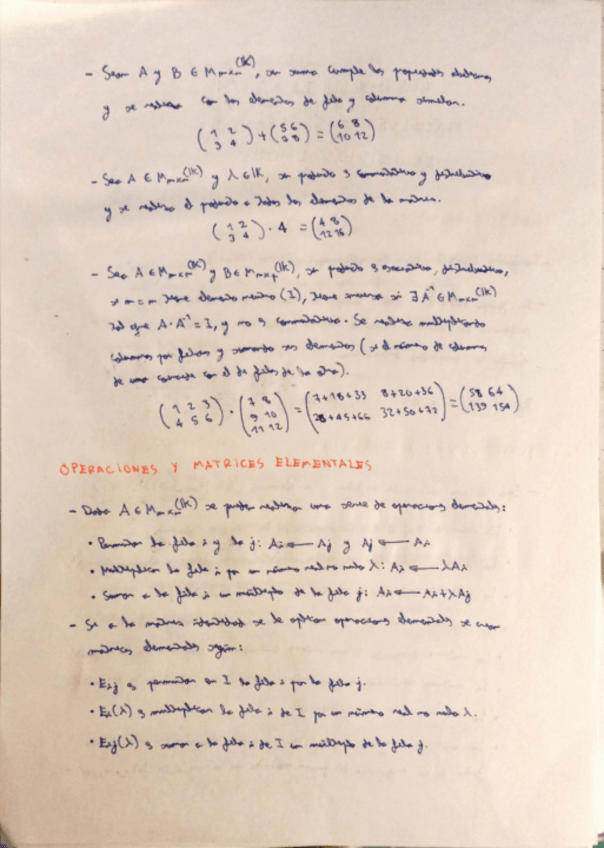 - Sean A y B ∈ Mmxn(IK), su suma cumple las propiedades
y se realiza con los elementos de fila y columna similar.
(1 2 / 3 4) + (5 6 / 7 8) = (6 8 / 10 12)
- Sea A ∈ Mmxn(IK) y λ ∈ IK, su producto es conmutativo y distributivo
y se realiza el producto a todos los elementos de la matriz.
(1 2 / 3 4) · 4 = (4 8 / 12 16)
- Sea A ∈ Mmxn(IK) y B ∈ Mnxp(IK), su producto es asociativo, distributivo,
si m=n tiene elemento neutro (I), tiene inversa si ∃ A⁻¹ ∈ Mmxn(IK)
tal que A · A⁻¹ = I, y no es conmutativo. Se realiza multiplicando
columnas por filas y sumando sus elementos (si el número de columnas
de una coincide con el de filas de la otra).
(1 2 3 / 4 5 6) · (7 8 / 9 10 / 11 12) = (7+18+33 8+20+36 / 28+45+66 32+50+72) = (58 64 / 139 154)
OPERACIONES Y MATRICES ELEMENTALES
- Dada A ∈ Mmxn(IK) se pueden realizar una serie de operaciones elementales:
• Permutar la fila i y la j: Ai ← Aj y Aj ← Ai
• Multiplicar la fila i por un número real no nulo λ: Ai ← λAi
• Sumar a la fila i un múltiplo de la fila j: Ai ← Ai+λAj
- Si a la matriz identidad se le aplican operaciones elementales se crean
matrices elementales según:
• Eij es permutar en I la fila i por la fila j.
• Ei(λ) es multiplicar la fila i de I por un número real no nulo λ.
• Eij(λ) es sumar a la fila i de I un múltiplo de la fila j.